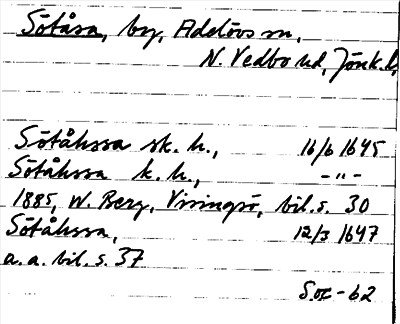 Sötåsa, by, Adelövs sn,
N. Vedbo hd, Jönk. l.
Sötåhssa sk. h., 16/6 1645
Sötåhssa k. h., -"-
1885, W. Berg, Visingsö, bil. s. 30
Sötåhssa, 12/3 1647
a. a. bil. s. 37
Soc-62